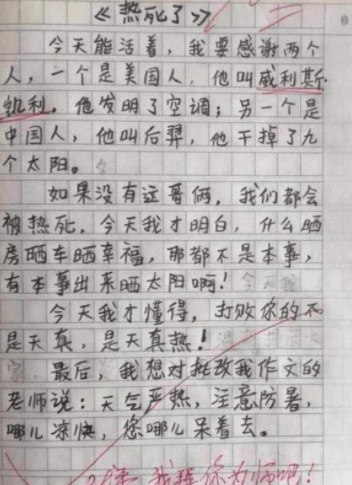 《热死了》
今天能活着，我要感谢两个
人，一个是美国人，他叫威利斯
凯利，他发明了空调；另一个是
中国人，他叫后羿，他干掉了九
个太阳。
如果没有这哥俩，我们都会
被热死，今天我才明白，什么晒
房晒车晒幸福，那都不是本事，
有本事出来晒太阳啊！
今天我才懂得，打败你的不
是天真，是天真热！
最后，我想对批改我作文的
老师说：天气严热，注意防暑，
哪儿凉快，您哪儿呆着去。
我拜你为师吧！